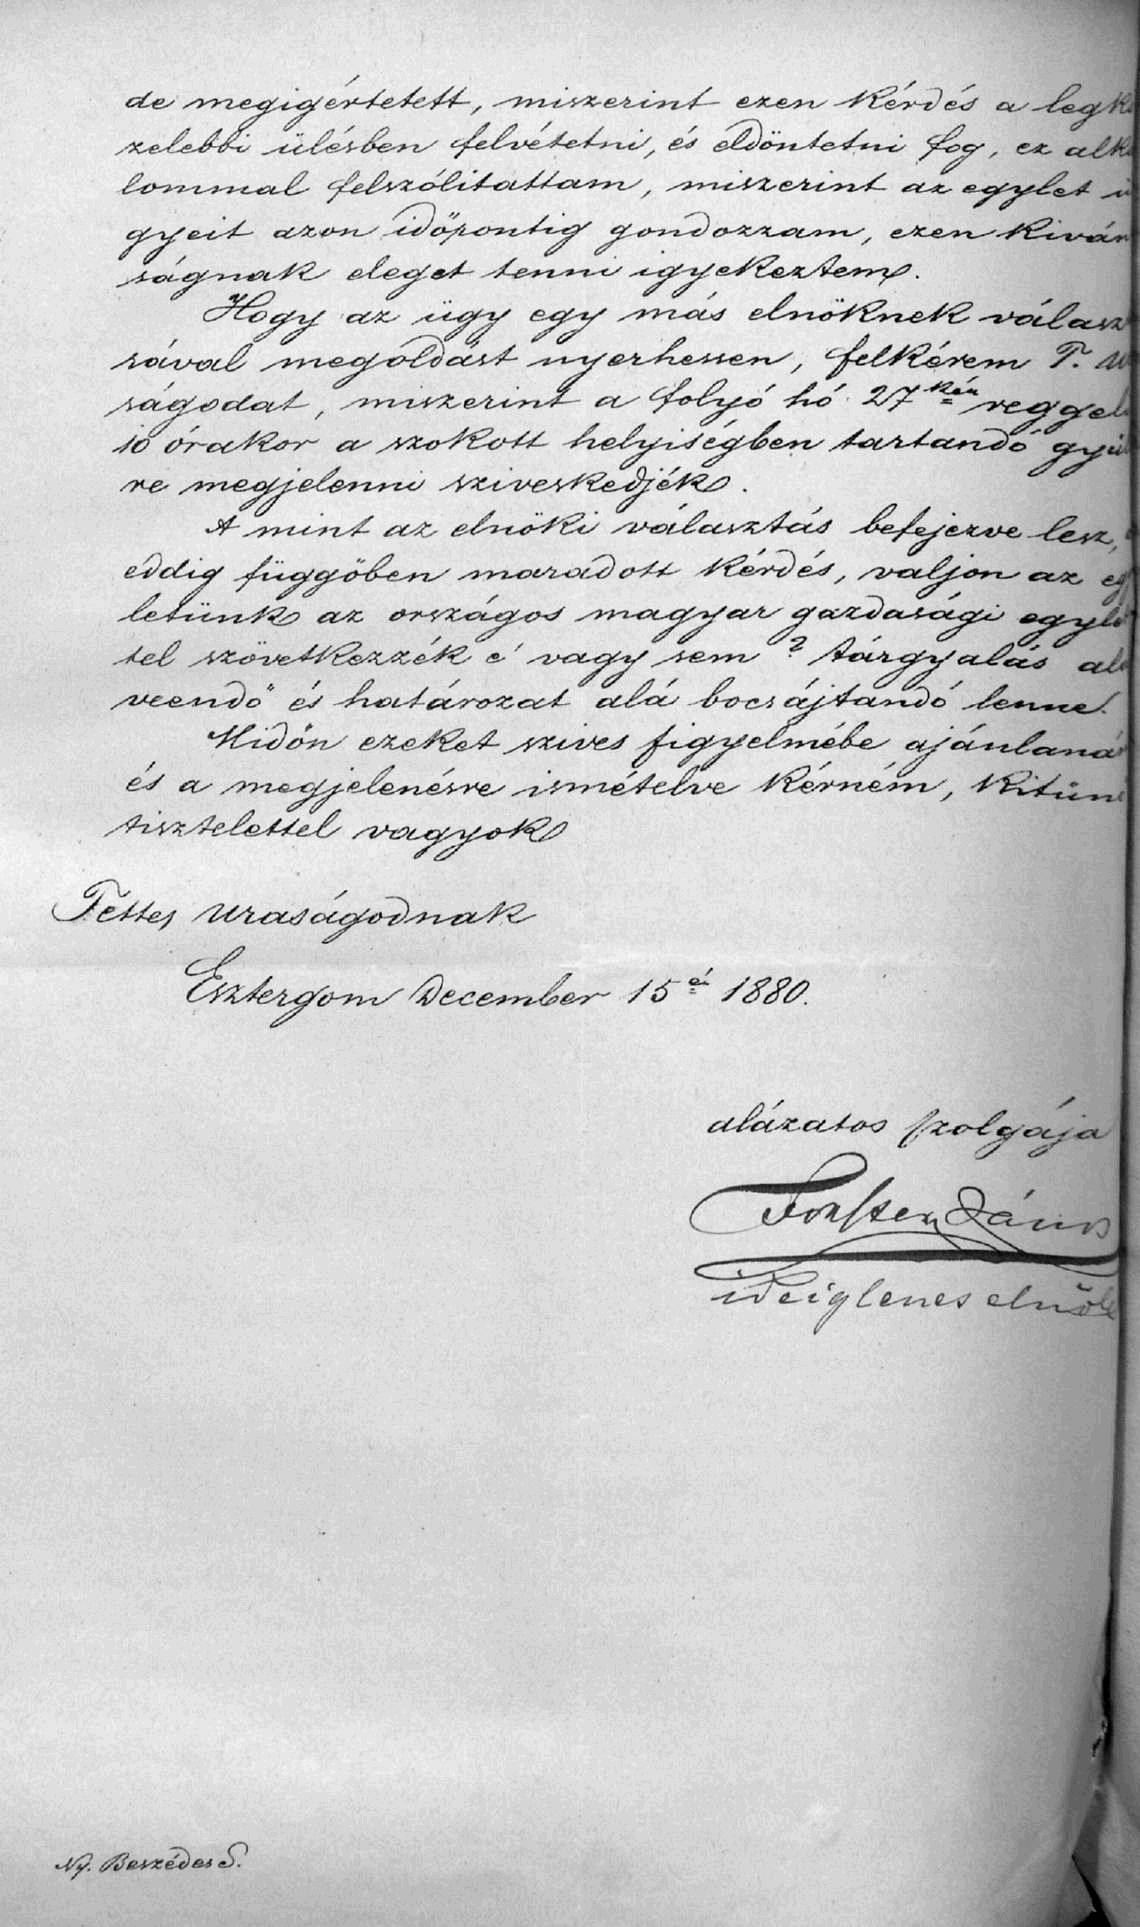 de megigértetett, miszerint ezen kérdés a legk
zelebbi ülésben felvétetni, és eldöntetni fog, ez alk
lommal felszólitattam, miszerint az egylet
gyeit azon időpontig gondozzam, ezen kiván
ságnak eleget tenni igyekeztem.
Hogy az ügy egy más elnöknek válasz
sával megoldást nyerhessen, felkérem T.
ságodat, miszerint a folyó hó 27 kén reggel
10 órakor a szokott helyiségben tartandó gyü
re megjelenni sziveskedjék.
A mint az elnöki választás befejezve lesz,
eddig függőben maradott kérdés, valjon az eg
letünk az országos magyar gazdasági egyle
tel szövetkezzék é vagy sem? tárgyalás al
veendő és határozat alá bocsájtandó lenne.
Midőn ezeket szives figyelmébe ajánlaná
és a megjelenésre ismételve kérném, kitün
tisztelettel vagyok
Tettes Uraságodnak
Esztergom December 15 én 1880.
alázatos szolgája
Forster János
ideiglenes elnök
Ny. Beszédes S.